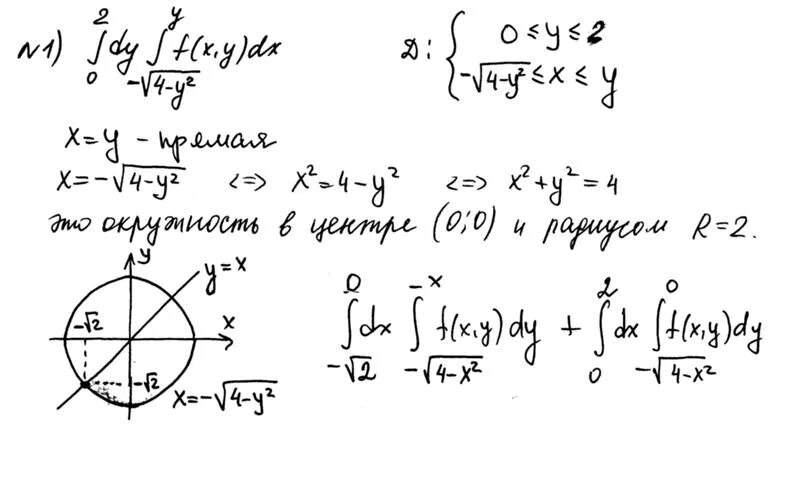 N1) ∫₀² dy ∫_{-√(4-y²)}^{y} f(x,y)dx
D: { 0 ≤ y ≤ 2
-√(4-y²) ≤ x ≤ y
x=y - прямая
x=-√(4-y²) <=> x²=4-y² <=> x²+y²=4
это окружность в центре (0;0) и радиусом R=2.
y
y=x
-√2
x
-√2
x=-√(4-y²)
∫_{-√2}^{0} dx ∫_{-√(4-x²)}^{-x} f(x,y)dy + ∫₀² dx ∫_{-√(4-x²)}^{0} f(x,y)dy